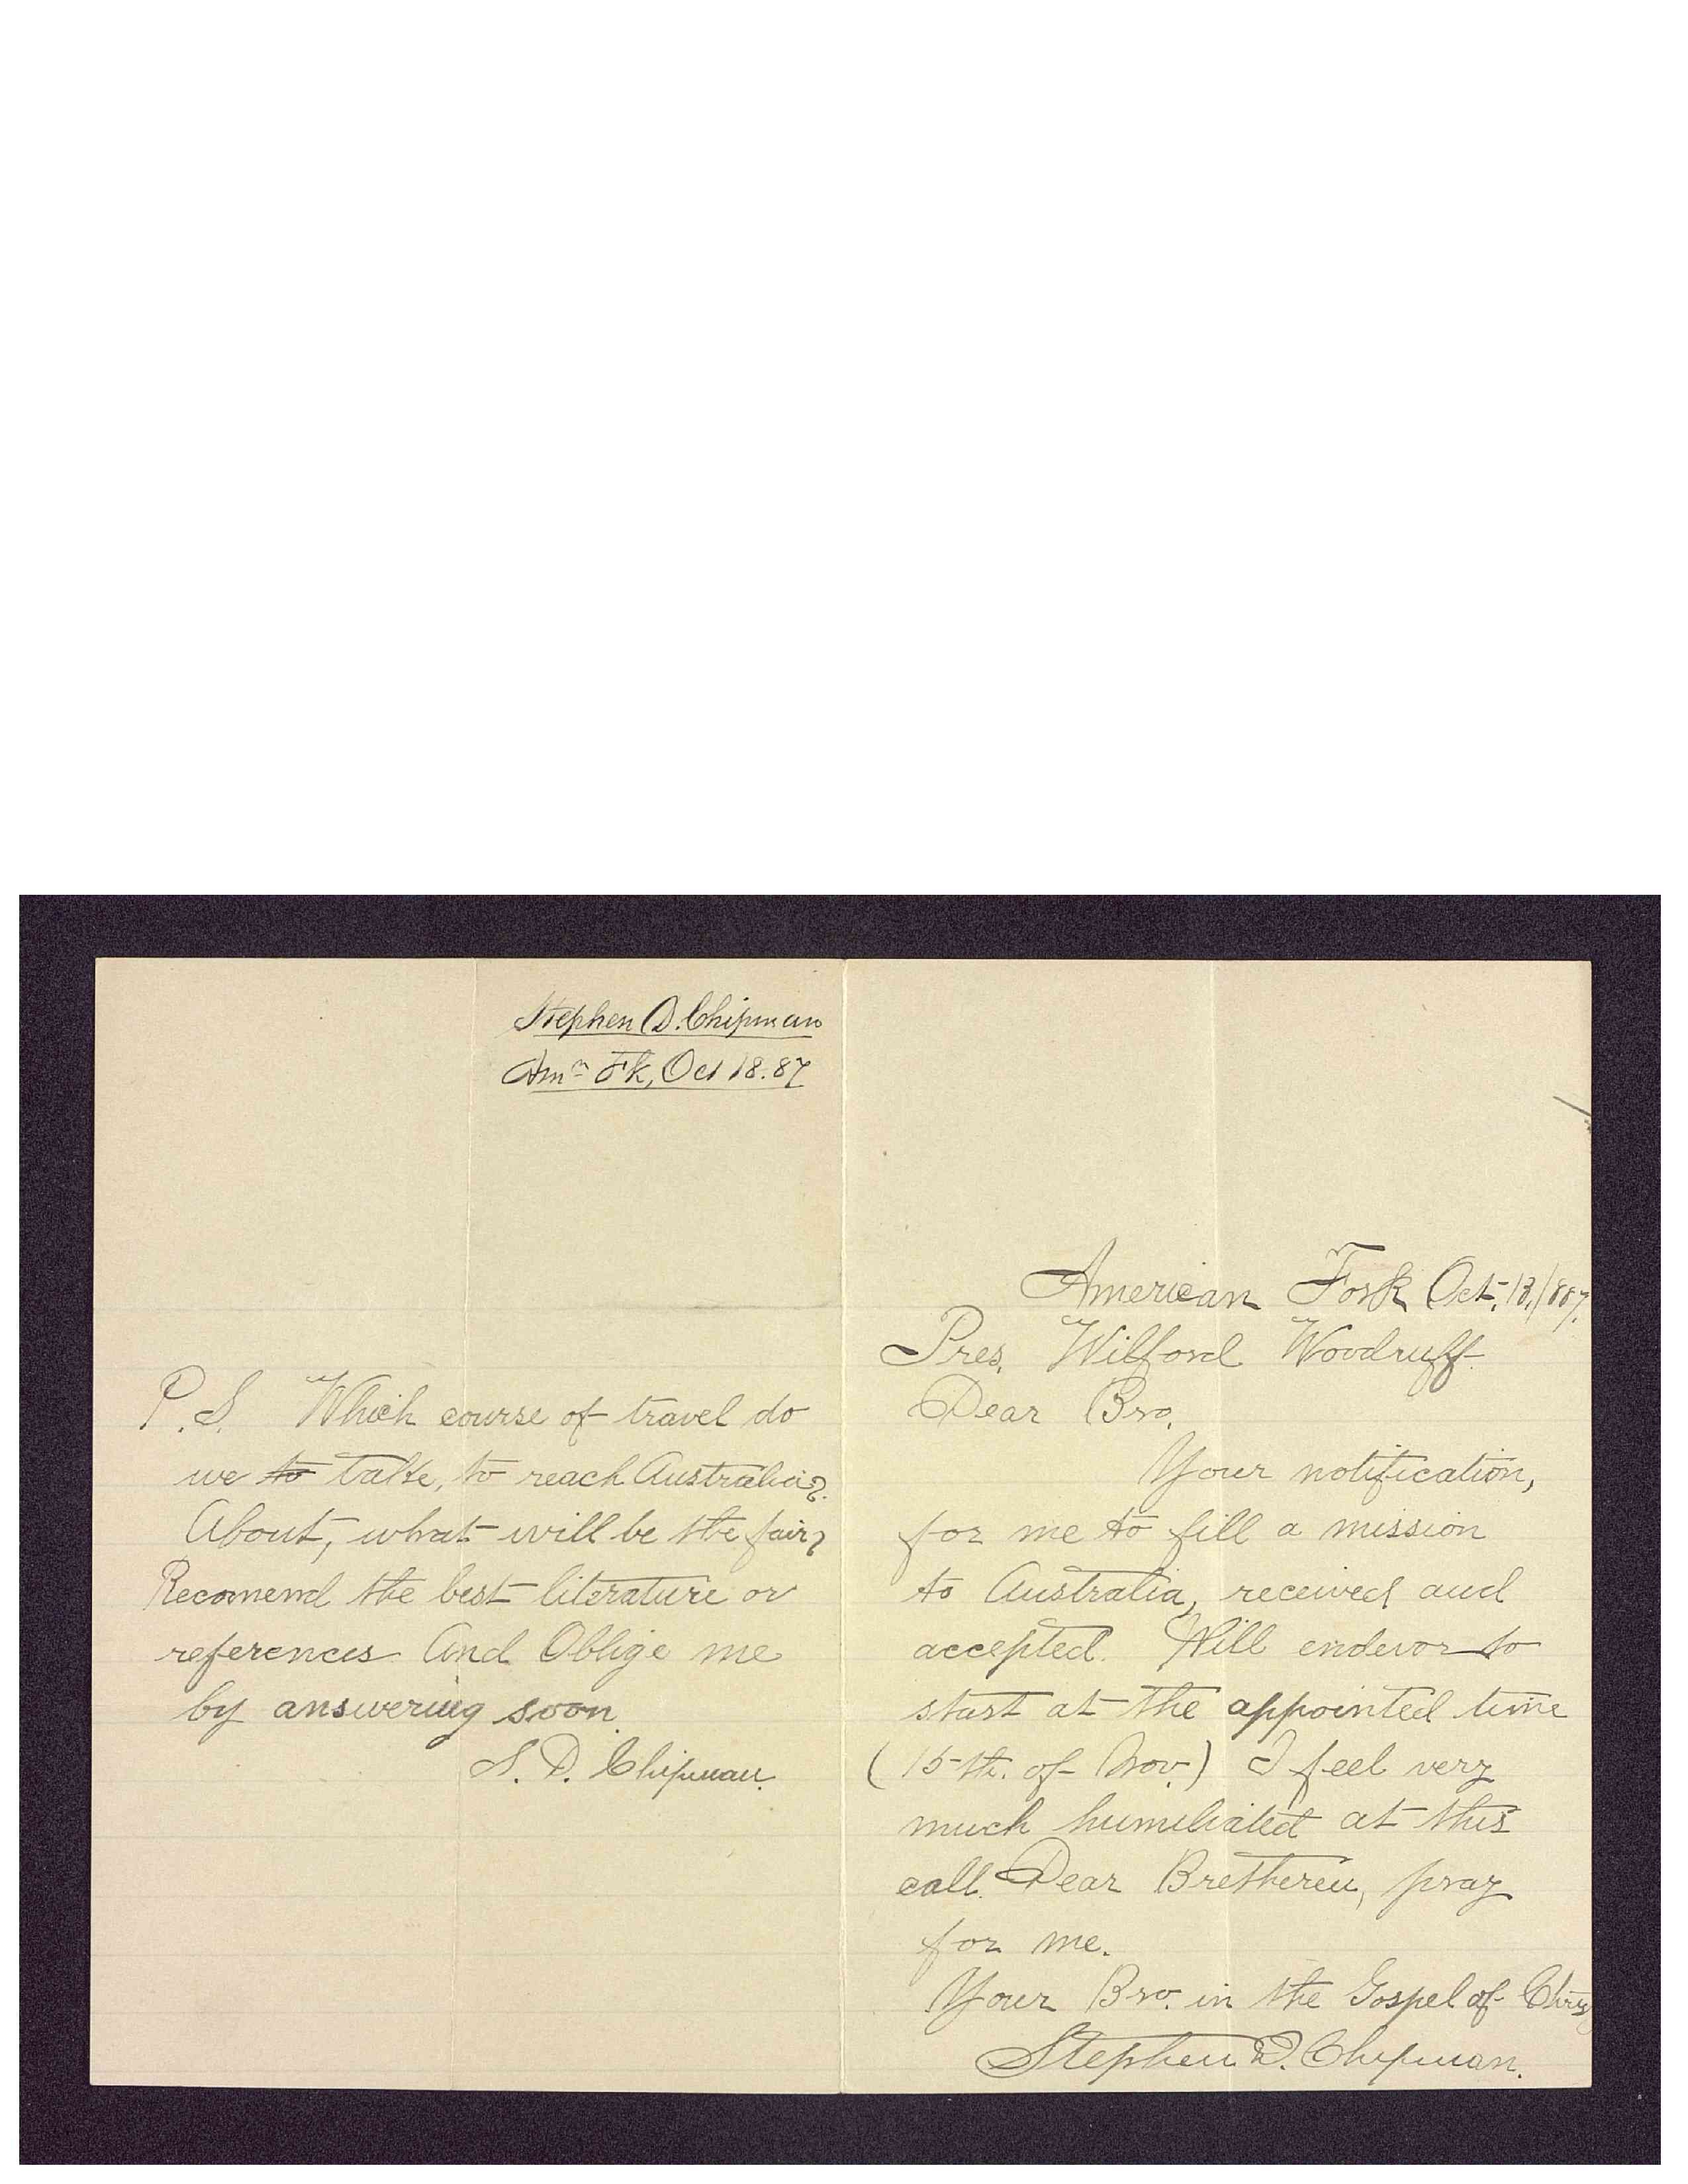 Stephen D. Chipman
Amn Fk, Oct 18.87
American Fork Oct. 18, 1887.
Pres. Wilford Woodruff
Dear Bro.
Your notification,
for me to fill a mission
to Australia, received and
accepted. Will endevor to
start at the appointed time
(15th. of Nov.) I feel very
much humiliated at this
call. Dear Bretheren, pray
for me.
Your Bro. in the Gospel of Chris
Stephen D. Chipman.
P.S. Which course of travel do
we to take, to reach Australia?
About, what will be the fair?
Recomend the best literature or
references And Oblige me
by answering soon.
S. D. Chipman.